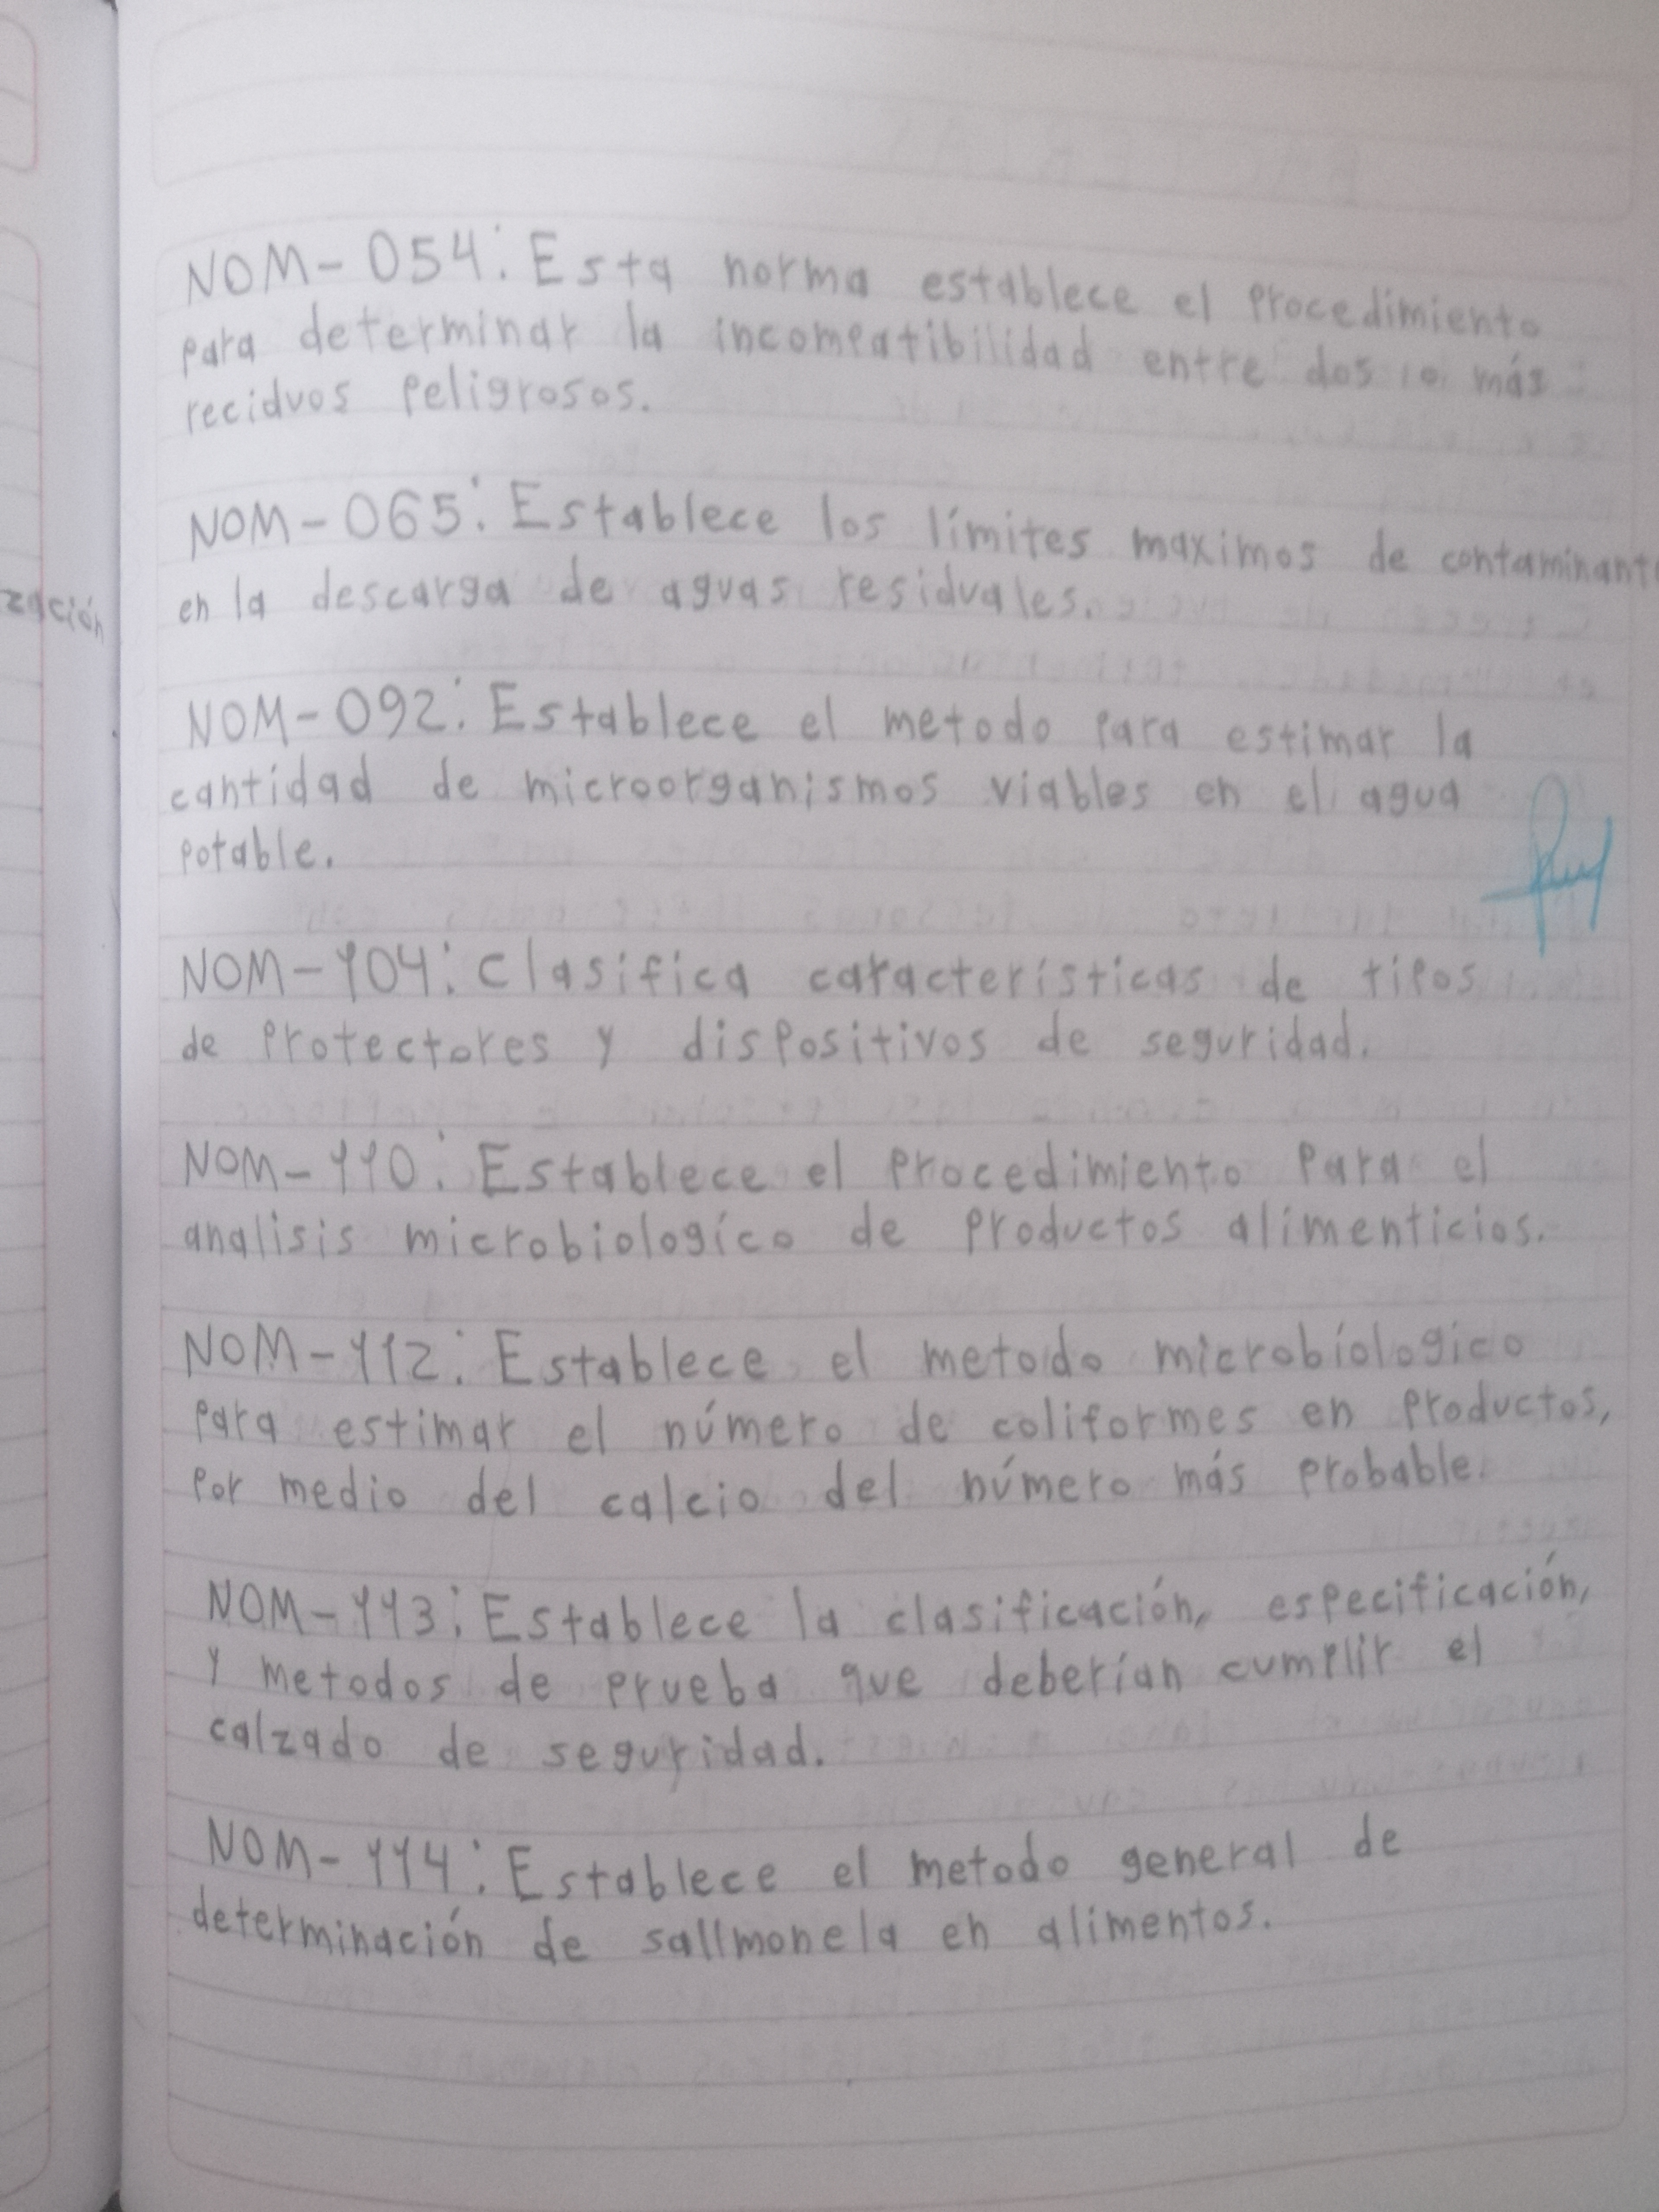 NOM-054: Esta norma establece el procedimiento
para determinar la incompatibilidad entre dos o más
reciduos peligrosos.
NOM-065: Establece los límites maximos de contaminant
en la descarga de aguas residuales.
zación
NOM-092: Establece el metodo para estimar la
cantidad de microorganismos viables en el agua
potable.
NOM-104: Clasifica características de tipos
de protectores y dispositivos de seguridad.
NOM-110: Establece el procedimiento para el
analisis microbiologíco de productos alimenticios.
NOM-112: Establece el metodo microbíologico
para estimar el número de coliformes en productos,
por medio del calcio del número más probable.
NOM-113: Establece la clasificación, especificación,
y metodos de prueba que deberían cumplir el
calzado de seguridad.
NOM-114: Establece el metodo general de
determinación de sallmonela en alimentos.